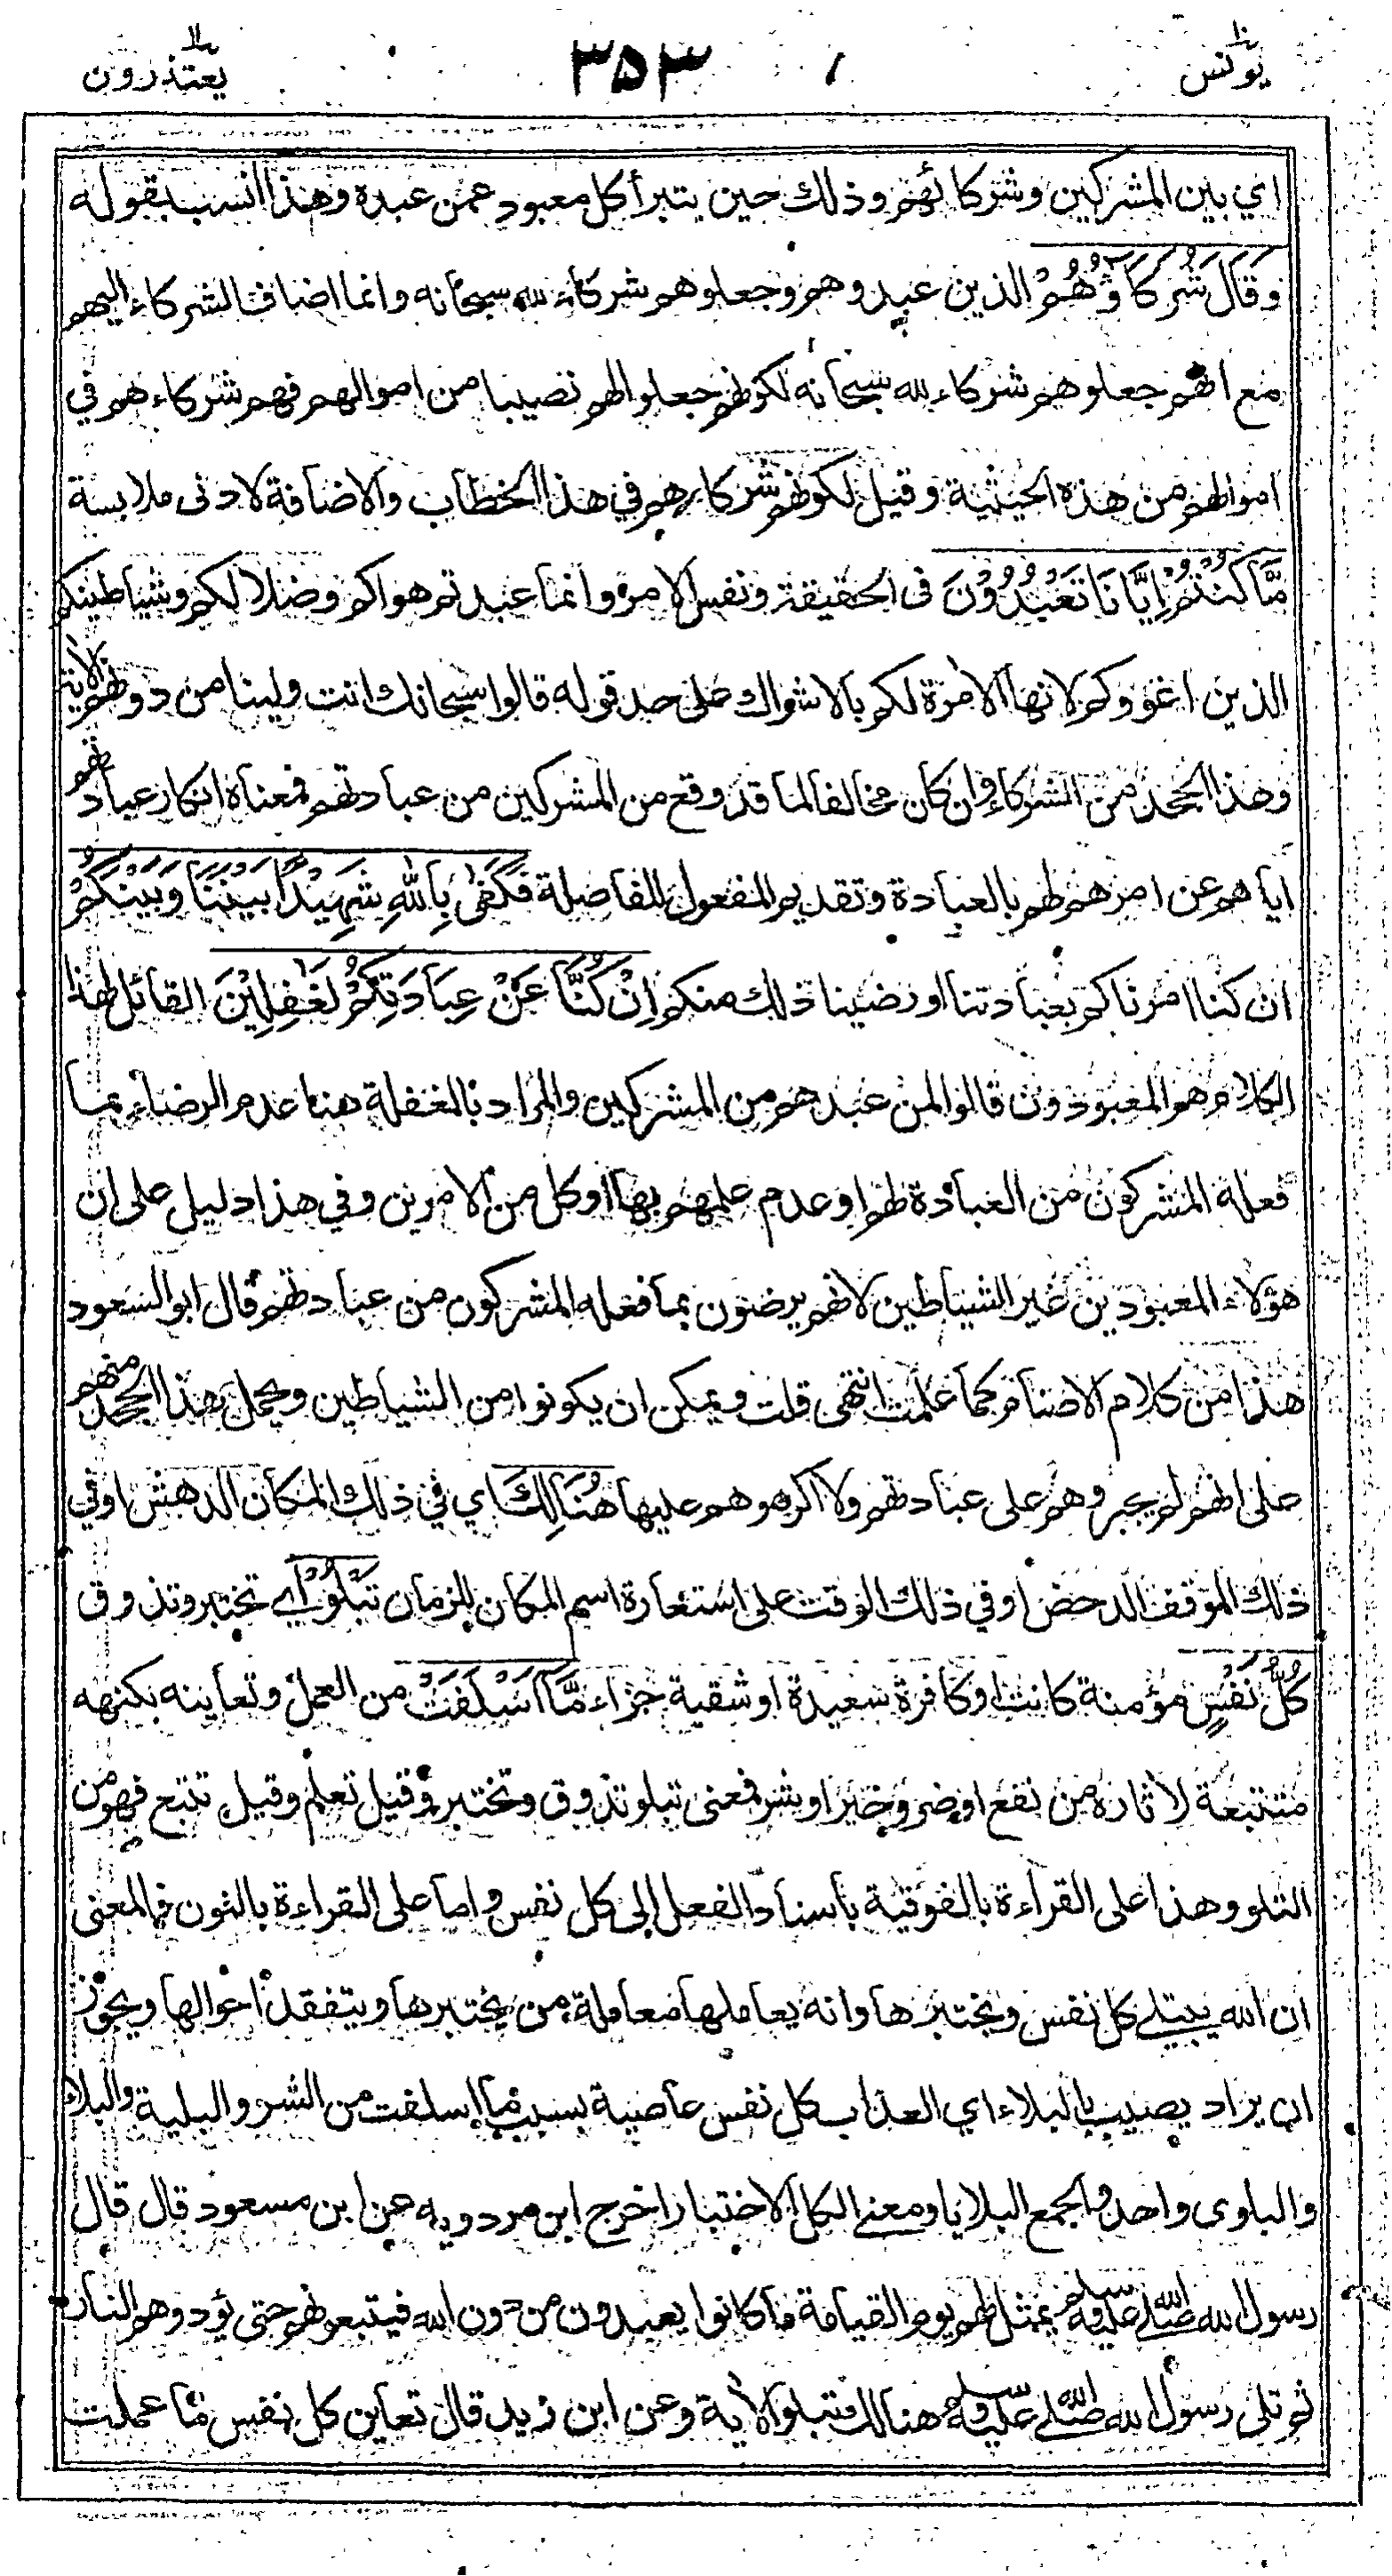 يونس ١٠
٣٥٣
يعتذرون ١١
اي بين المشركين وشركائهم وذلك حين يتبرأ كل معبود عمن عبده وهذا انسب بقوله
وَقَالَ شُرَكَآؤُهُمْ الذين عبدوهم وجعلوهم شركاء لله سبحانه وانما اضاف الشركاء اليهم
مع انهم جعلوهم شركاء لله سبحانه لكونهم جعلوا لهم نصيبا من اموالهم فهم شركاءهم في
اموالهم من هذه الحيثية وقيل لكونهم شركاءهم في هذا الخطاب والاضافة لادنى ملابسة
مَّا كُنْتُمْ إِيَّانَا تَعْبُدُوْنَ في الحقيقة ونفس الامر وانما عبدتم هواكم وضلالكم وشياطينكم
الذين اغووكم لانها الامرة لكم بالاشراك على حد قوله قالوا سبحانك انت ولينا من دونهم الاية
وهذا الجحد من الشركاء وان كان مخالفا لما قد وقع من المشركين من عبادتهم فمعناه انكار عبادتهم
اياهم عن امرهم لهم بالعبادة وتقديم المفعول للفاصلة فَكَفَىٰ بِاللهِ شَهِيْدًا بَيْنَنَا وَبَيْنَكُمْ
ان كنا امرناكم بعبادتنا او رضينا ذلك منكم اِنْ كُنَّا عَنْ عِبَادَتِكُمْ لَغٰفِلِيْنَ القائل لهذا
الكلام هو المعبودون قالوا لمن عبدهم من المشركين والمراد بالغفلة هنا عدم الرضاء بما
فعله المشركون من العبادة لهم او عدم علمهم بها او كل من الامرين وفي هذا دليل على ان
هؤلاء المعبودين غير الشياطين لانهم يرضون بما فعله المشركون من عبادتهم قال ابو السعود
هذا من كلام الاصنام كما علمت انتهى قلت ويمكن ان يكونوا من الشياطين ويحمل هذا الجحد منهم
على انهم لم يجبروهم على عبادتهم ولا اكرهوهم عليها هُنَالِكَ اي في ذلك المكان الدهش او في
ذلك الموقف الدحض او في ذلك الوقت على استعارة اسم المكان للزمان تَبْلُوْا اي تختبر وتذوق
كُلُّ نَفْسٍ مؤمنة كانت او كافرة سعيدة او شقية جزاء مَّا اَسْلَفَتْ من العمل وتعاينه بكنهه
متتبعة لاثاره من نفع او ضر وخير او شر فمعنى تبلو تذوق وتختبر وقيل تعلم وقيل تتبع فهو من
التلو وهذا على القراءة بالفوقية باسناد الفعل الى كل نفس واما على القراءة بالنون فالمعنى
ان الله يبتلي كل نفس ويختبرها وانه يعاملها معاملة من يختبرها ويتفقد احوالها ويجوز
ان يراد يصيب بالبلاء اي العذاب كل نفس عاصية بسبب ما اسلفت من الشر والبلية والبلاء
والبلوى واحد والجمع البلايا ومعنى الكل الاختبار اخرج ابن مردويه عن ابن مسعود قال قال
رسول الله صلى الله عليه وسلم يمثل لهم يوم القيامة ما كانوا يعبدون من دون الله فيتبعونهم حتى يؤدوهم النار
ثم تلى رسول الله صلى الله عليه وسلم هنالك تبلو الاية وعن ابن زيد قال تعاين كل نفس ما عملت